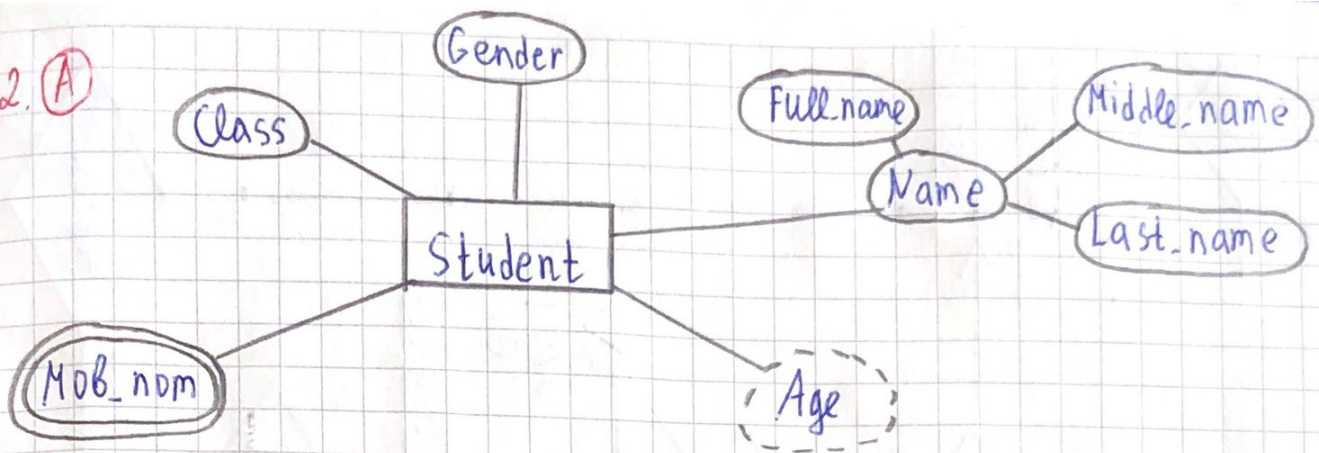 2. A
Gender
Class
Full_name
Middle_name
Name
Last_name
Student
Mob_nom
Age